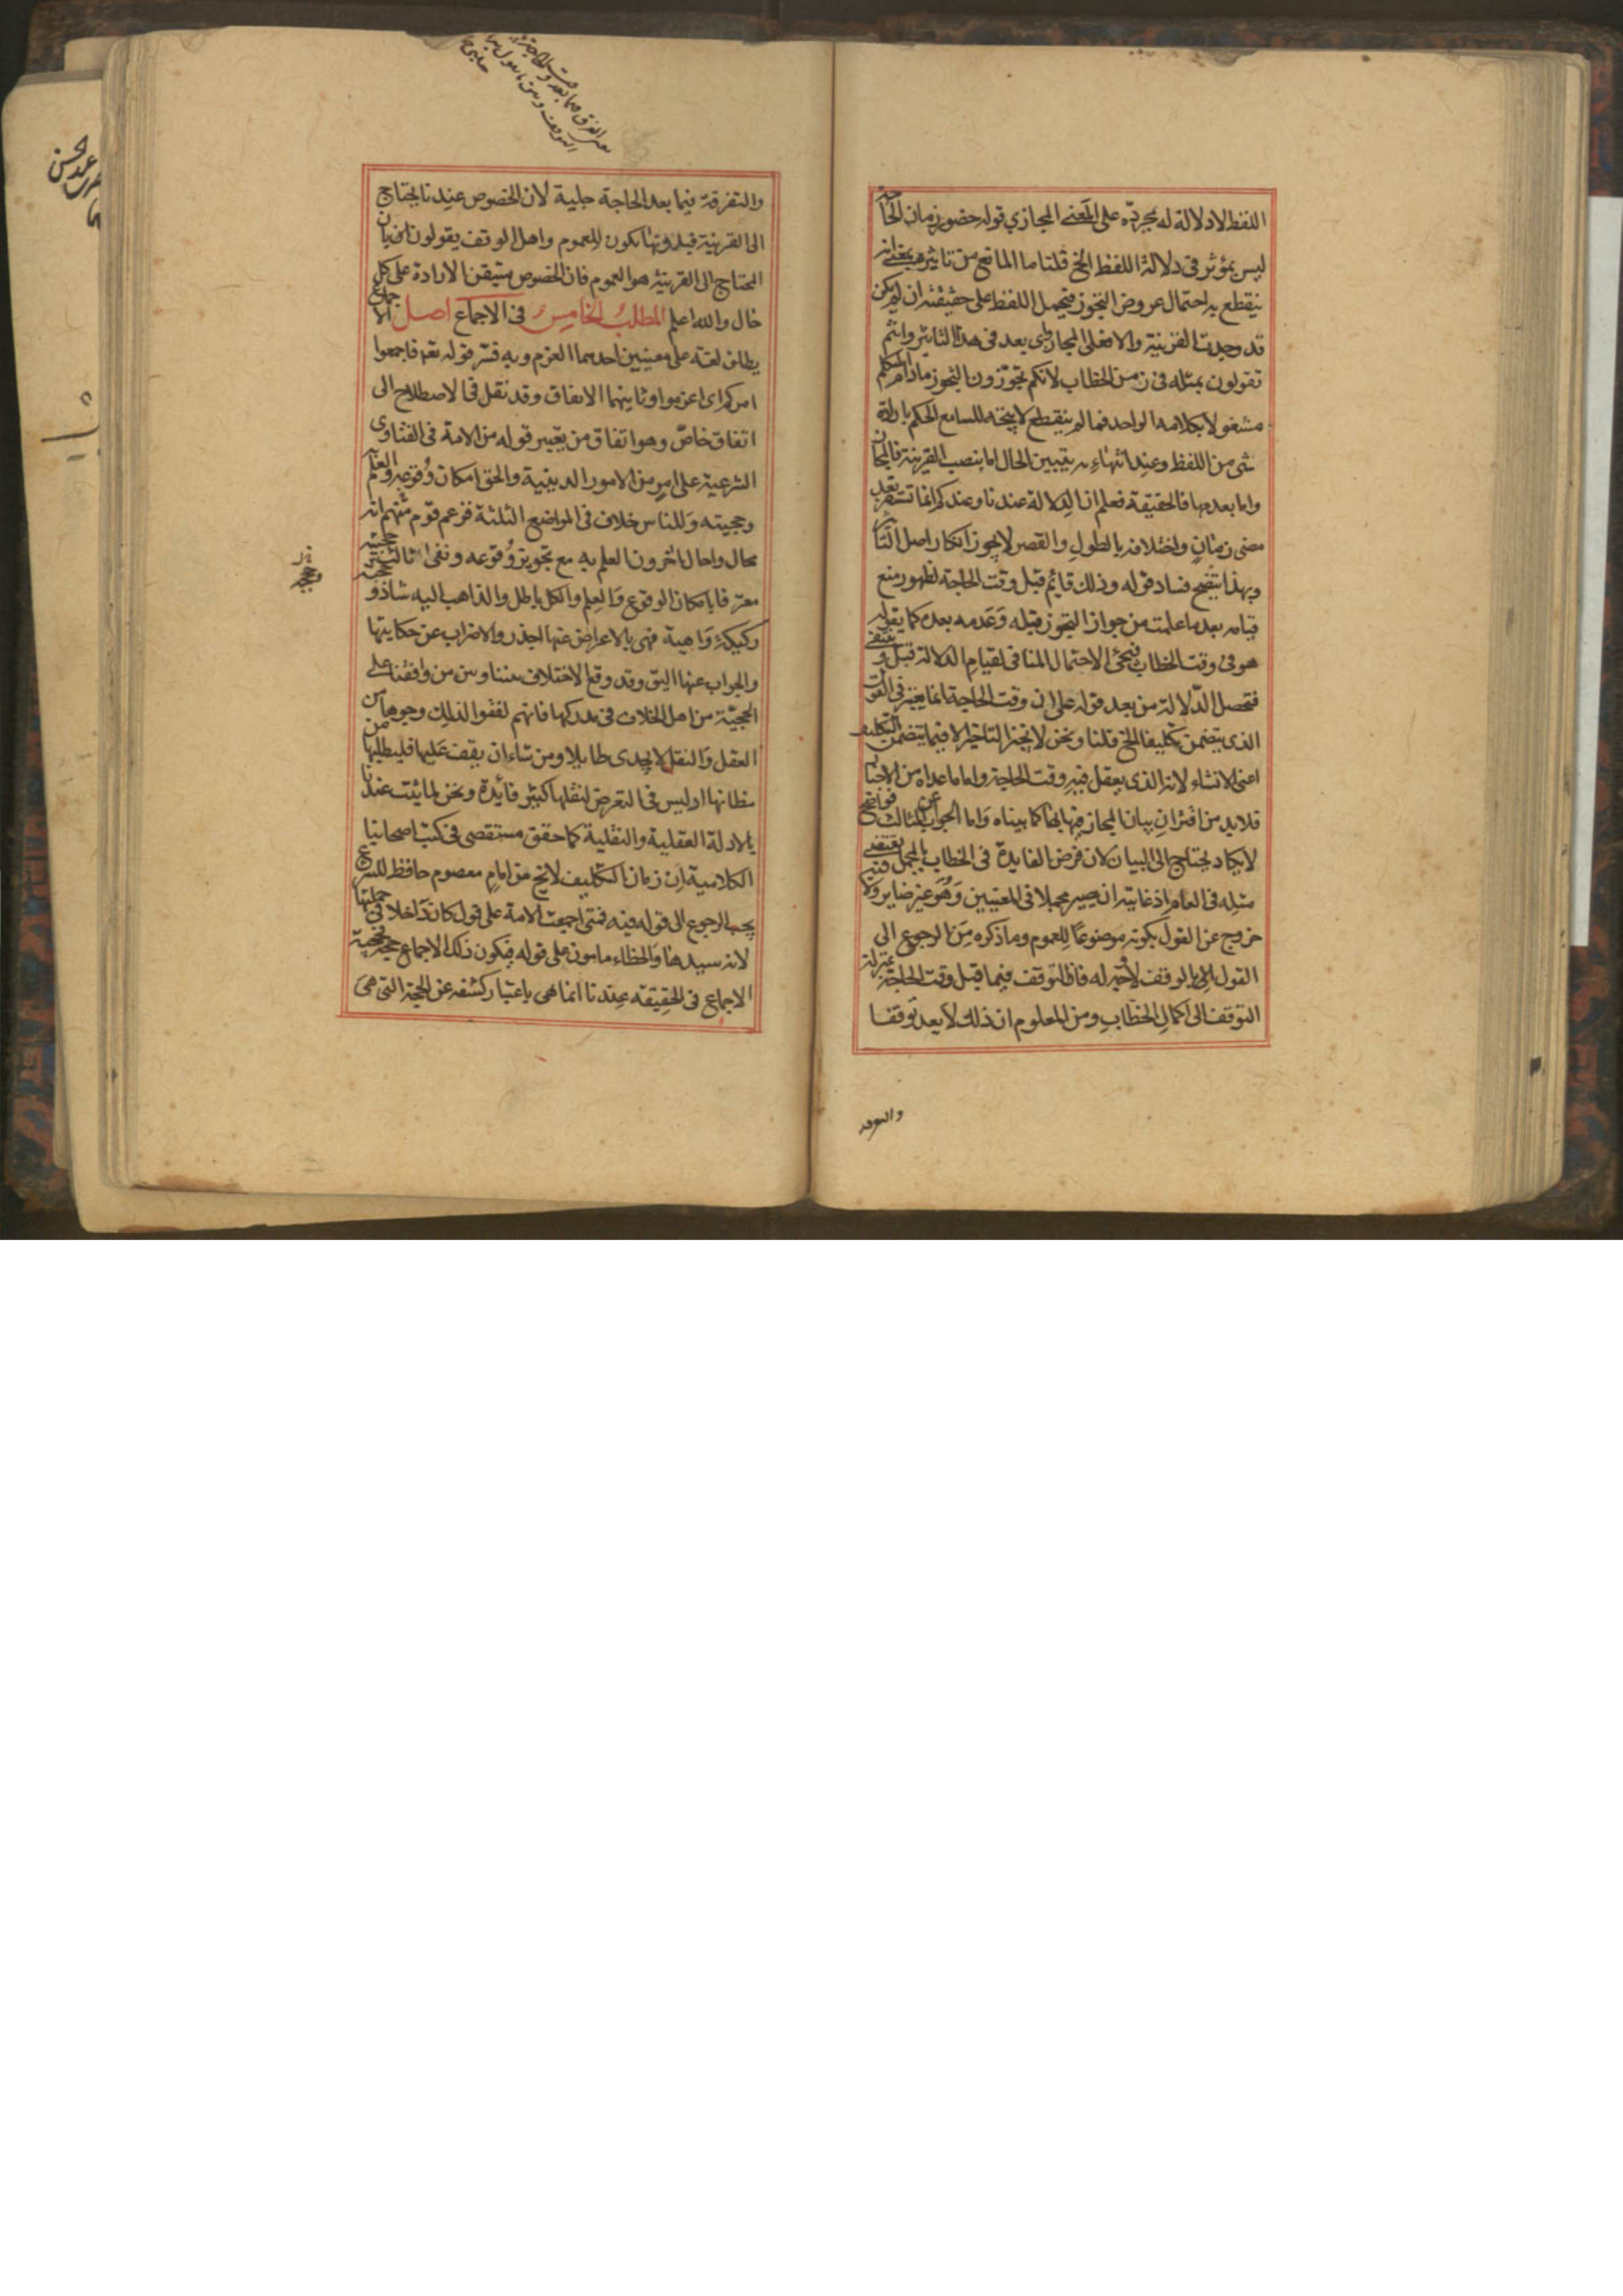 اللفظ لا دلالة له بمجرده على المعنى المجازي قوله حضور زمان الحاجة
ليس بمؤثر فى دلالة اللفظ الخ قلنا ما المانع من تاثيره بمعنى انه
ينقطع به احتمال عروض التجوز فيحمل اللفظ على حقيقته ان لم يكن
قد وجدت القرينة والا فعلى المجاز واى بعد فى هذا التاثير وانتم
تقولون بمثله فى زمن الخطاب لانكم تجوزون التجوز مادام المتكلم
مشغولا بكلامه الواحد فما لم ينقطع لا يتجه للسامع الحكم بارادة
شى من اللفظ وعند انتهائه يتبين الحال اما بنصب القرينة فالمجاز
واما بعدمها فالحقيقة فعلم ان الدلالة عندنا وعندكم انما تستقر بعد
مضى زمان واختلافه بالطول والقصر لا يجوز انكار اصل التاثير
وبهذا يتضح فساد قوله وذلك قايم قبل وقت الحاجة لظهور منع
قيامه بعد ما علمت من جواز التجوز قبله وعدمه بعده كما يقوله
هو فى وقت الخطاب فيجئ الاحتمال المنافى لقيام الدلالة قبل وينتفى
فتحصل الدلالة من بعد قوله على ان وقت الحاجة انما يعتبر فى القول
الذى يتضمن تكليفا الخ قلنا ونحن لا نجيز التاخير الا فيما يتضمن التكليف
اعنى الانشاء لانه الذى يعقل فيه وقت الحاجة واما ما عداه من الاخبار
فلابد من اقتران بيان المجاز فيها بها كما بيناه واما الجواب عن الثالث فواضح
لا يكاد يحتاج الى البيان لان فرض الفايدة فى الخطاب بالمجمل يقتضى
مثله فى العام اذ غايته ان يصير مجملا فى المعنيين وهو غير ضاير ولا فيه
خروج عن القول بكونه موضوعا للعموم وما ذكره من الرجوع الى
القول بالوقف لا وجه له فان التوقف فيما قبل وقت الحاجة بمنزلة
التوقف الى اكمال الخطاب ومن المعلوم ان ذلك لا يعد توقفا
والتفرقة
والتفرقة فيما بعد الحاجة جلية لان الخصوص عندنا يحتاج
الى القرينة فبدونها تكون للعموم واهل الوقف يقولون بان
المحتاج الى القرينة هو العموم فان الخصوص متيقن الارادة على كل
حال والله اعلم المطلب الخامس فى الاجماع اصل الاجماع
يطلق لغة على معنيين احدهما العزم وبه فسر قوله تعم فاجمعوا
امركم اى اعزموا وثانيهما الاتفاق وقد نقل فى الاصطلاح الى
اتفاق خاص وهو اتفاق من يعتبر قوله من الامة فى الفتاوى
الشرعية على امر من الامور الدينية والحق امكان وقوعه والعلم به
وحجيته وللناس خلاف فى المواضع الثلثة فزعم قوم منهم انه
محال واحال اخرون العلم به مع تجويز وقوعه ونفى ثالث حجيته
معترفا بامكان الوقوع والعلم والكل باطل والذاهب اليه شاذ و
ركيكة واهية فهى بالاعراض عنها اجدر والاضراب عن حكايتها
والجواب عنها اليق وقد وقع الاختلاف بيننا وبين من وافقنا على
الحجية من اهل الخلاف فى مدركها فانهم لفقوا لذلك وجوها من
العقل والنقل لا يجدى طايلا ومن شاء ان يقف عليها فليطلبها من
مظانها اوليس فى التعرض لنقلها كبير فايدة ونحن لما ثبت عندنا
بالادلة العقلية والنقلية كما حقق مستقصى فى كتب اصحابنا
الكلامية ان زمان التكليف لا يخ من امام معصوم حافظ للشرع
يجب الرجوع الى قوله فيه فمتى اجمعت الامة على قول كان داخلا فى جملتها
لانه سيدها والخطاء مامون على قوله فيكون ذلك الاجماع حجة فحجية
الاجماع فى الحقيقة عندنا انما هى باعتبار كشفه عن الحجة التى هى